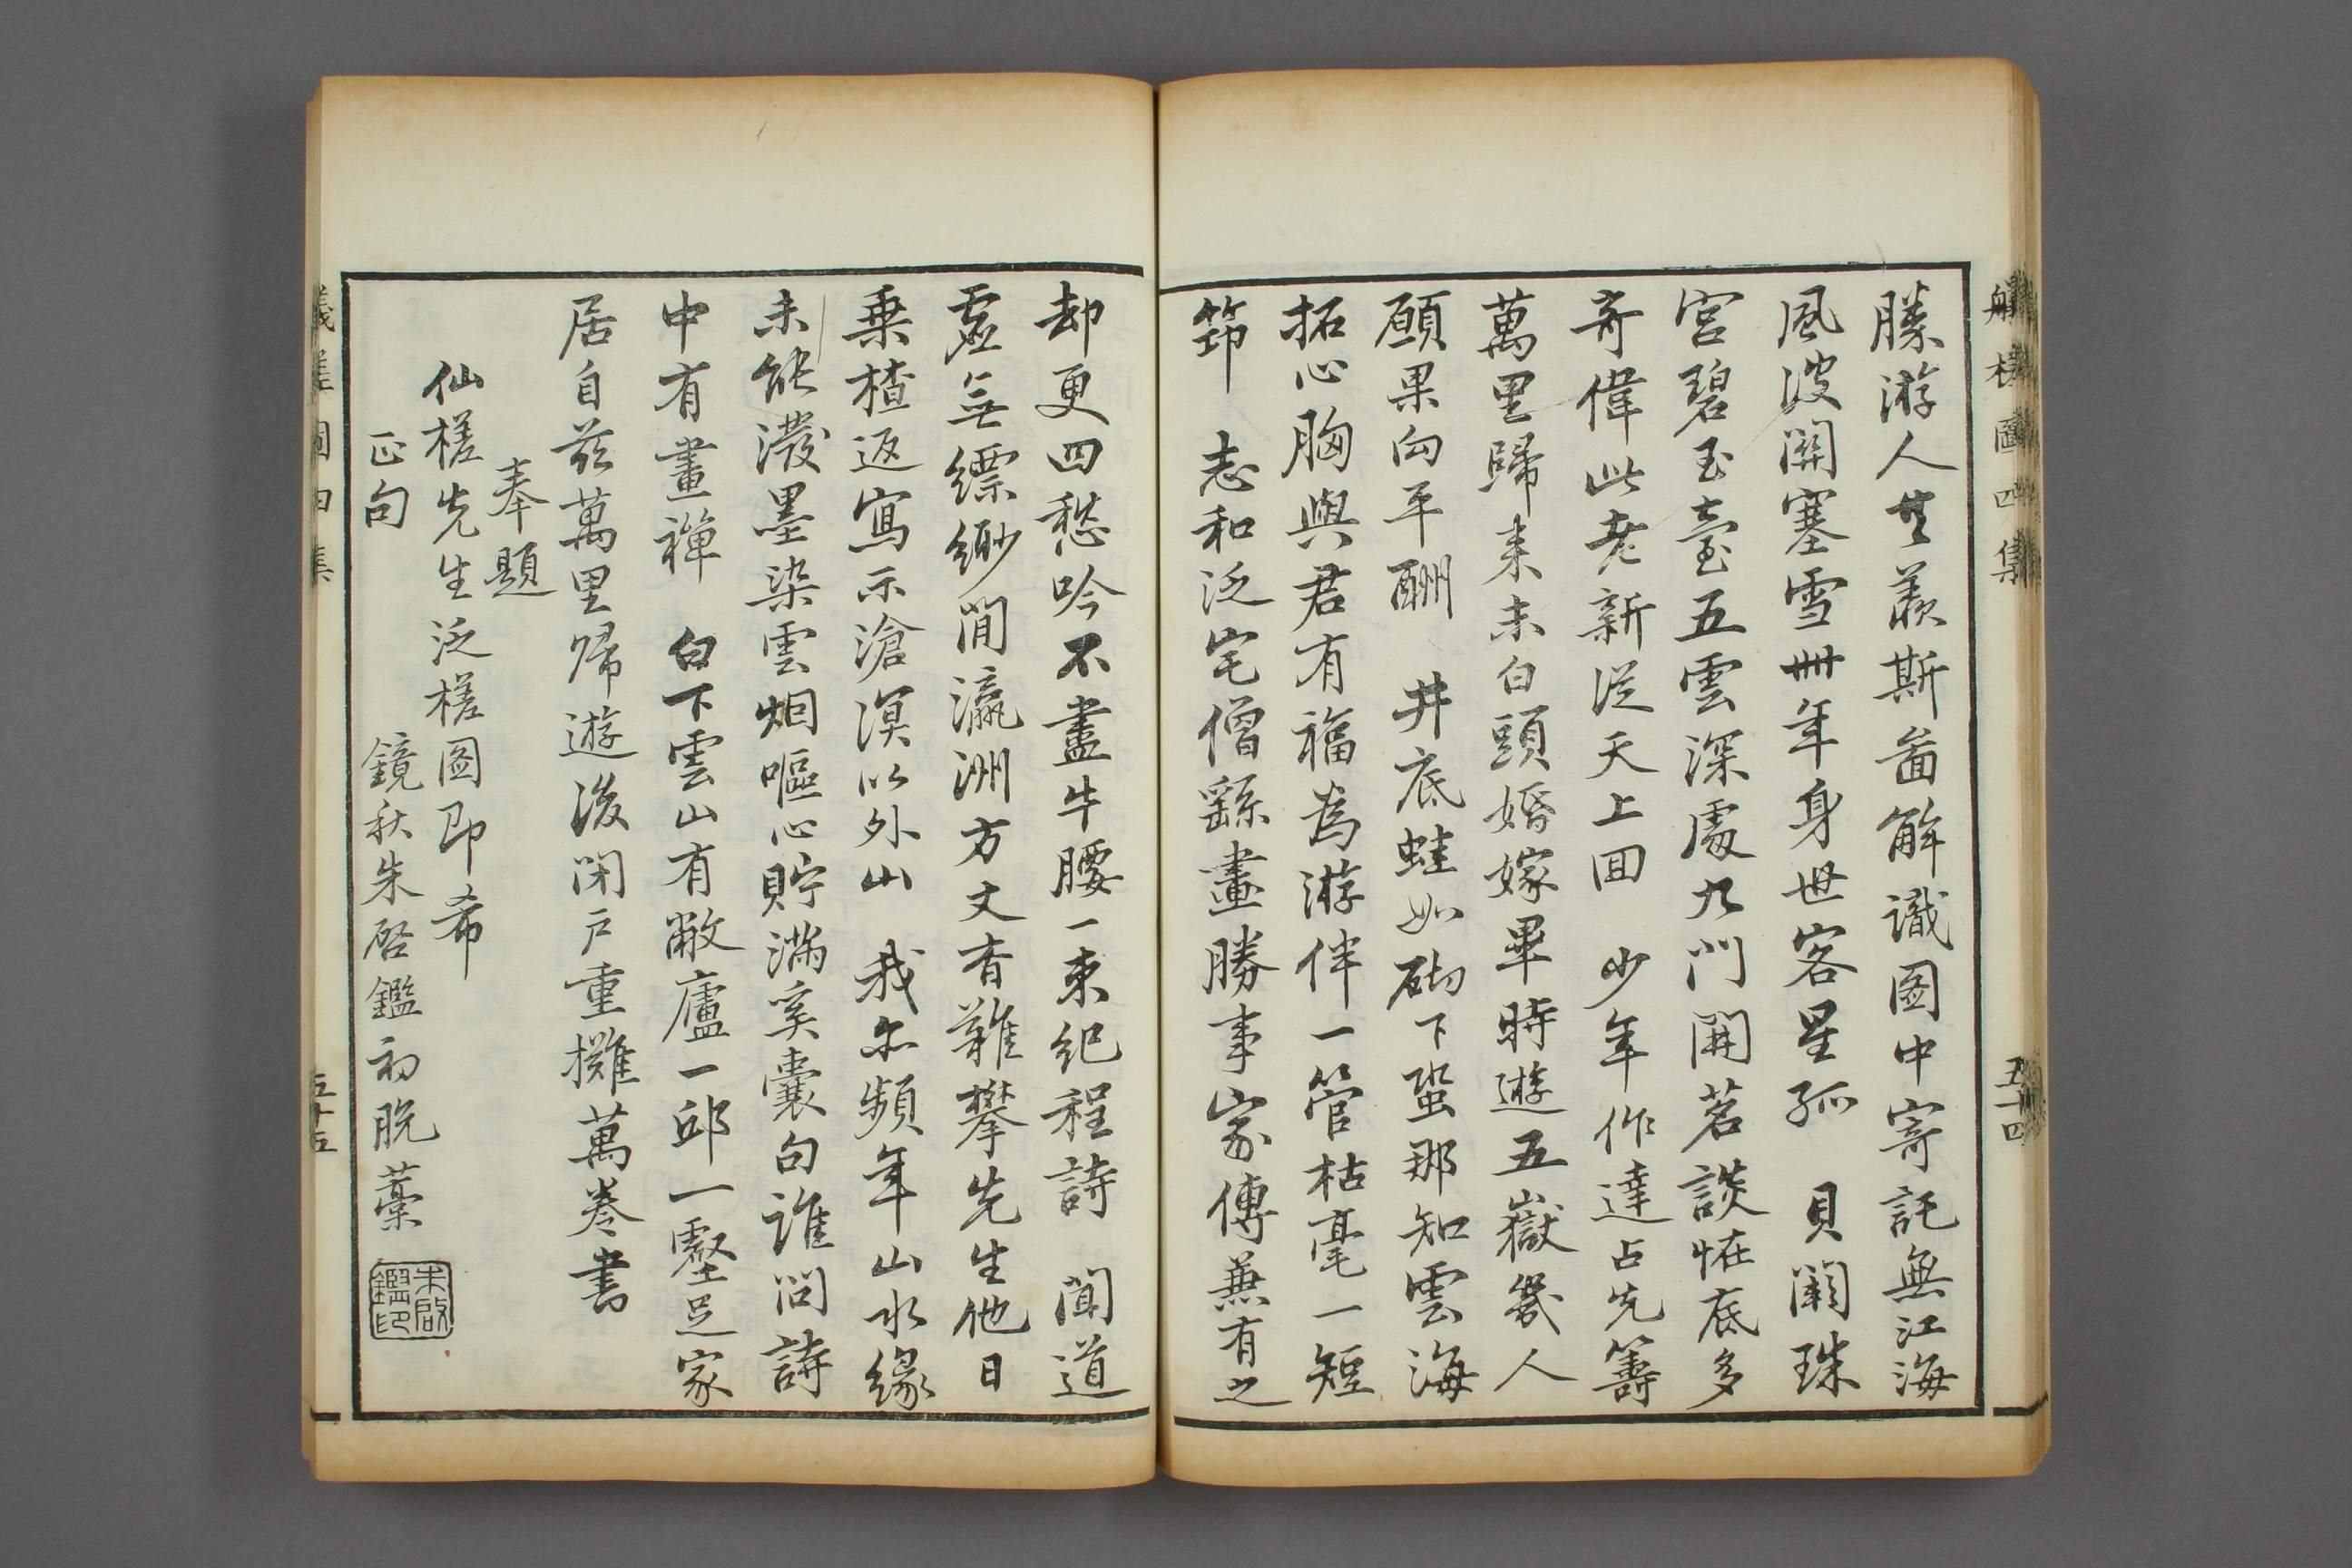 艤槎圖四集
五十四
勝游人世羨斯啚解識圖中寄託無江海
風波關塞雪卌年身世客星孤　貝闕珠
宮碧玉臺五雲深處九門開茗談恠底多
奇偉此老新從天上回　少年作達占先籌
萬里歸來未白頭婚嫁畢時遊五嶽幾人
願果向平酬　井底蛙如砌下蛩那知雲海
拓心胸與君有福為游伴一管枯毫一短
筇　志和泛宅僧繇畫勝事家傳兼有之
却更四愁吟不盡牛腰一束紀程詩　聞道
虛無縹緲間瀛洲方丈杳難攀先生他日
乘楂返寫示滄溟以外山　我亦頻年山水緣
未能潑墨染雲烟嘔心貯滿奚囊句誰問詩
中有畫禪　白下雲山有敝廬一邱一壑足家
居自茲萬里歸遊後閉戶重攤萬卷書
奉題
仙槎先生泛槎圖即希
正句
鏡秋朱啓鑑初脫藁
朱啟鑑印
艤槎圖四集
五十五